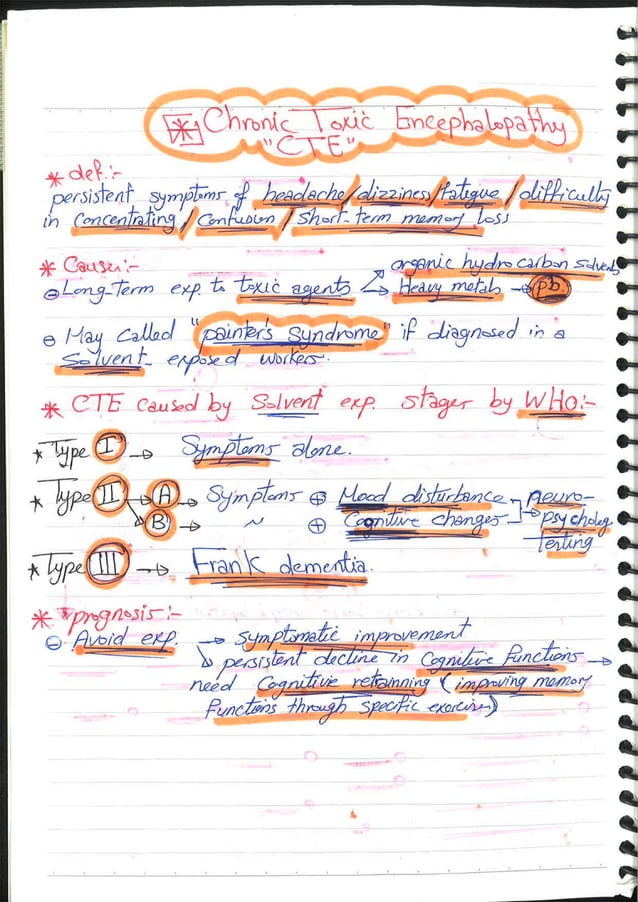 Chronic Toxic Encephalopathy
"CTE"
* def:-
persistent symptoms of headache/dizziness/fatigue/difficulty
in concentrating/Confusion/short-term memory loss
* Causes:-
organic hydrocarbon solvents
⊖ Long-term exp. to toxic agents → Heavy metals → pb.
⊖ May Called "painter's syndrome" if diagnosed in a
Solvent- exposed workers.
* CTE Caused by Solvent exp. stages by WHO:-
* Type I → Symptoms alone.
* Type II → A → Symptoms ⊕ Mood disturbance neuro-
B → ~ ⊕ Cognitive changes psycholog
Testing
* Type III → Frank dementia.
* prognosis:-
⊖ Avoid exp. → symptomatic improvement
↳ persistent decline in Cognitive functions →
need Cognitive retraining (improving memory
functions through specific exercises)